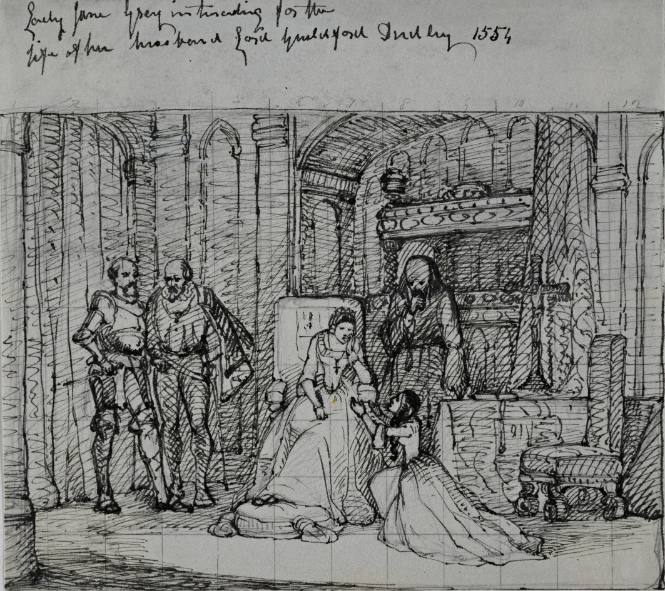 Lady Jane Grey interceding for the
life of her husband Lord Guildford Dudley 1554
7 8 10 11 12